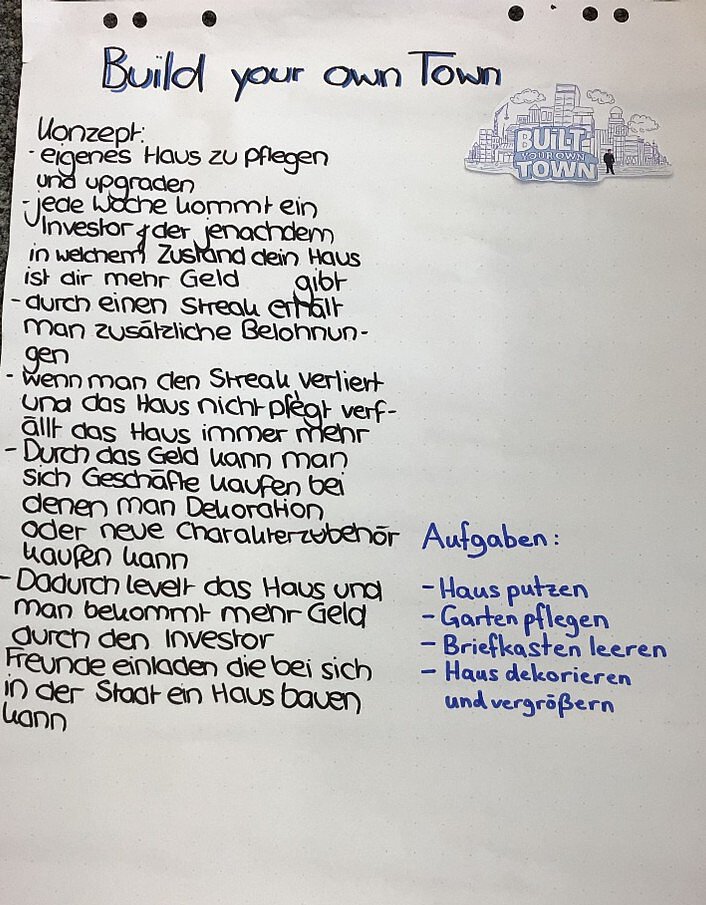 Build your own Town
BUiLT-
YOUR OWN
TOWN
Konzept:
- eigenes Haus zu pflegen
und upgraden
- jede Woche kommt ein
Investor der jenachdem
in welchem Zustand dein Haus
ist dir mehr Geld gibt
- durch einen Streak erhält
man zusätzliche Belohnun-
gen
- wenn man den Streak verliert
und das Haus nicht pflegt verf-
ällt das Haus immer mehr
- Durch das Geld kann man
sich Geschäfte kaufen bei
denen man Dekoration
oder neue Charakterzubehör
kaufen kann
- Dadurch levelt das Haus und
man bekommt mehr Geld
durch den Investor
Freunde einladen die bei sich
in der Stadt ein Haus bauen
kann
Aufgaben:
- Haus putzen
- Garten pflegen
- Briefkasten leeren
- Haus dekorieren
und vergrößern